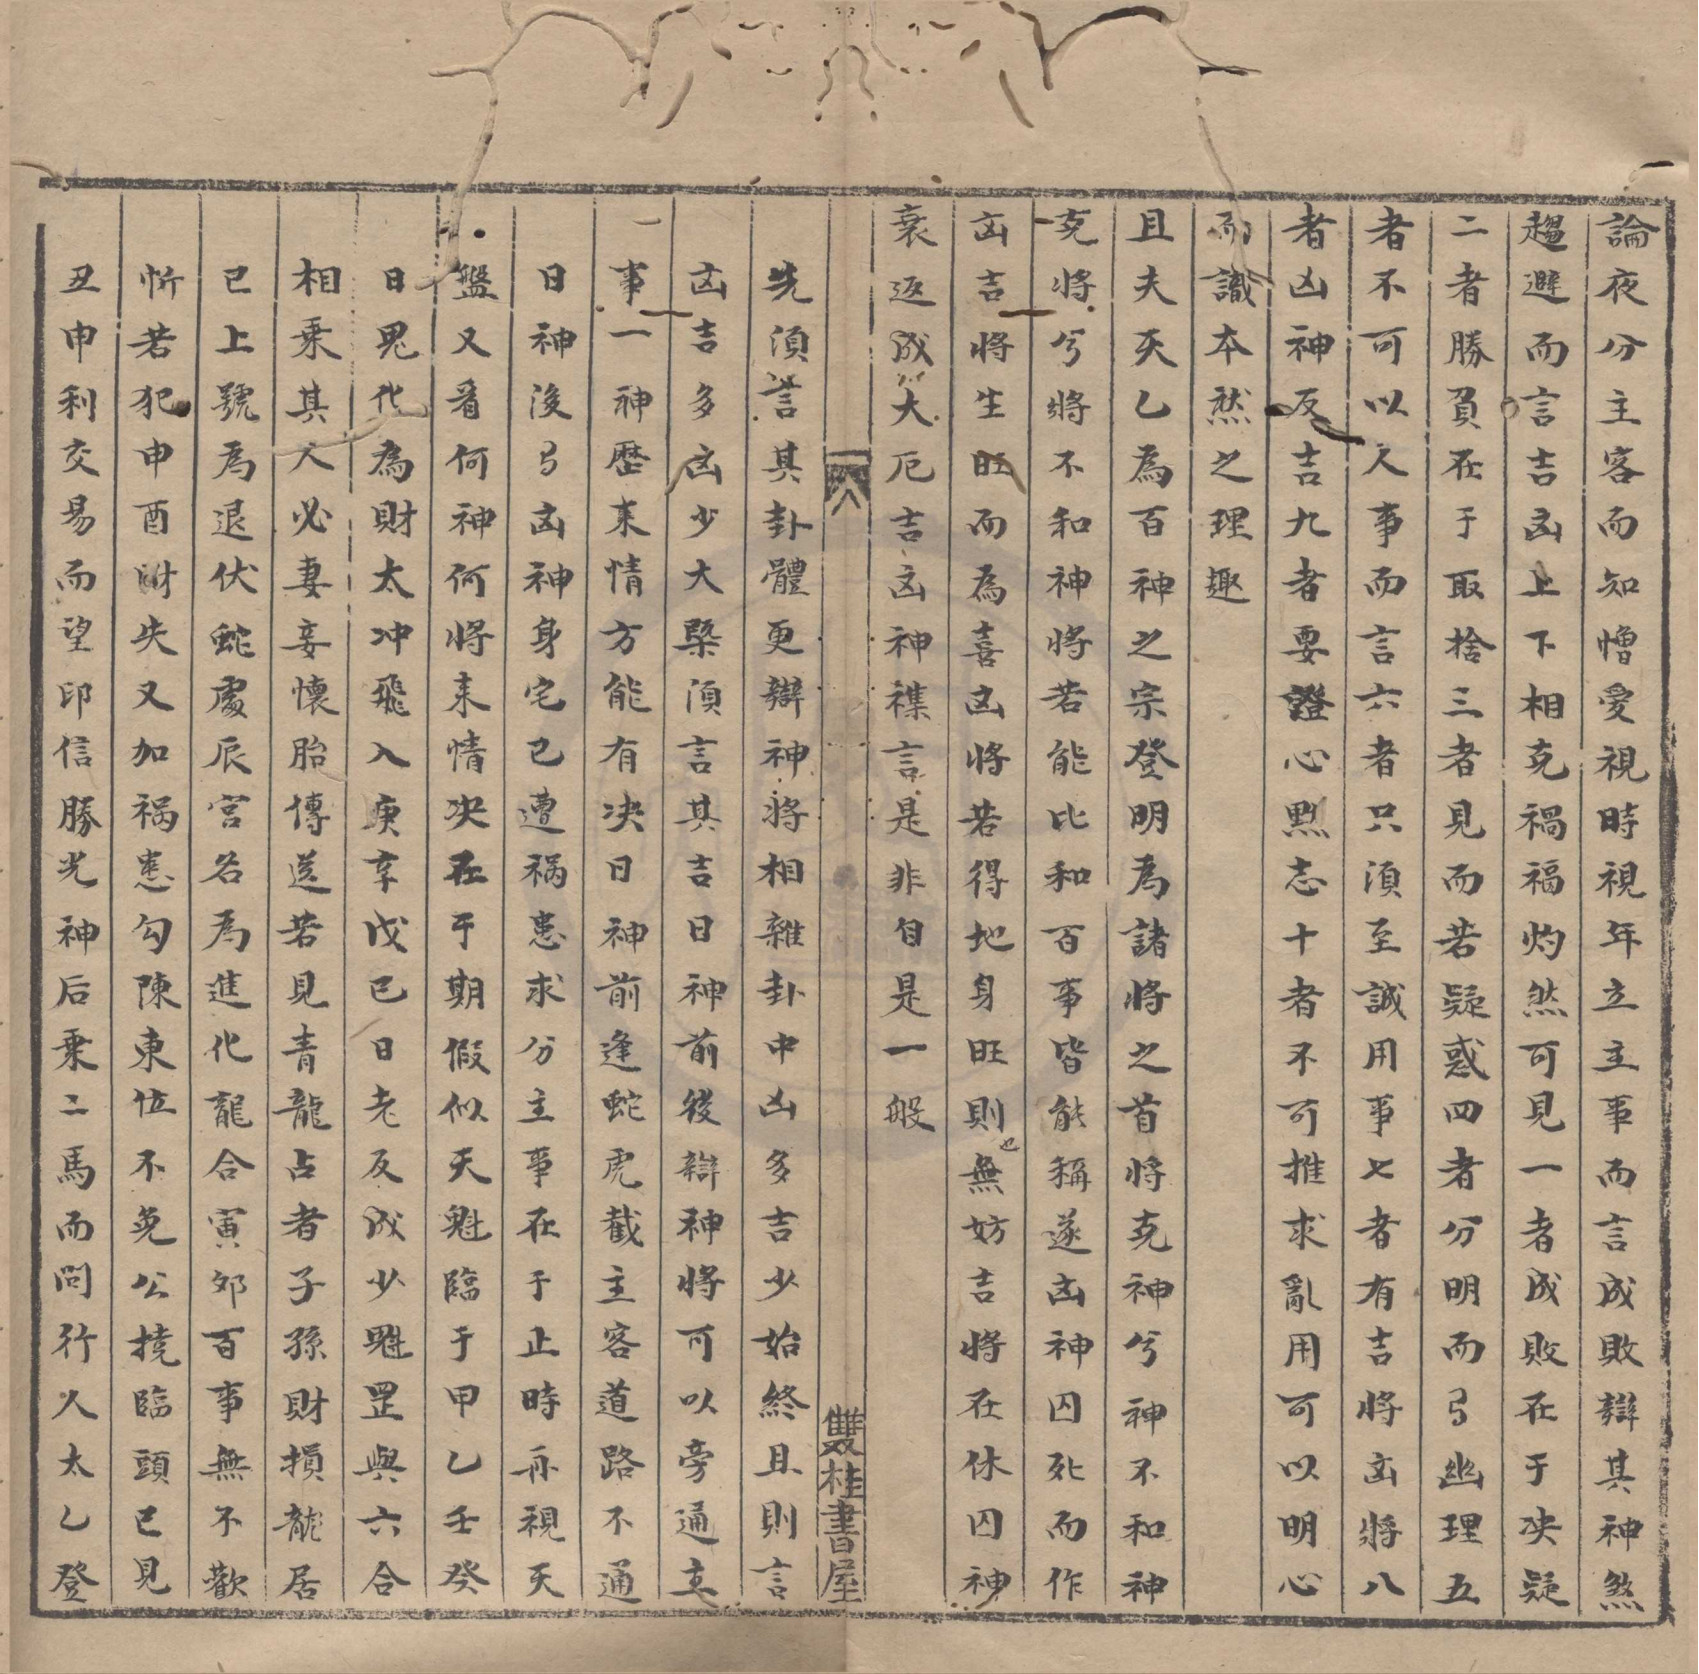 論夜分主客而知憎愛視時視年立主事而言成敗辯其神煞
趨避而言吉凶上下相克禍福灼然可見一者成敗在于决疑
二者勝負在于取捨三者見而若疑惑四者分明而弓幽理五
者不可以人事而言六者只須至誠用事七者有吉將凶將八
者凶神反吉九者要證心點志十者不可推求亂用可以明心
而識本然之理趣
且夫天乙為百神之宗登明為諸將之首將克神兮神不和神
克將兮將不和神將若能比和百事皆能稱遂凶神囚死而作
凶吉將生旺而為喜凶將若得地身旺則也無妨吉將在休囚神
衰返成大厄吉凶神襍言是非自是一般
雙桂書屋
先須言其卦體更辯神將相雜卦中凶多吉少始終且則言
凶吉多凶少大槩須言其吉日神前後辯神將可以旁通玄
事一神歷來情方能有决日神前逢蛇虎截主客道路不通
日神後弓凶神身宅已遭禍患求分主事在于止時再視天
盤又看何神何將來情决在于期假似天魁臨于甲乙壬癸
日鬼化為財太冲飛入庚辛戊己日老反成少魁罡與六合
相乘其人必妻妾懷胎傳送若見青龍占者子孫財損龍居
巳上號為退伏蛇處辰宮名為進化龍合寅卯百事無不歡
忻若犯申酉財失又加禍患勾陳東位不免公撓臨頭已見
丑申利交易而望印信勝光神后乘二馬而問行人太乙登